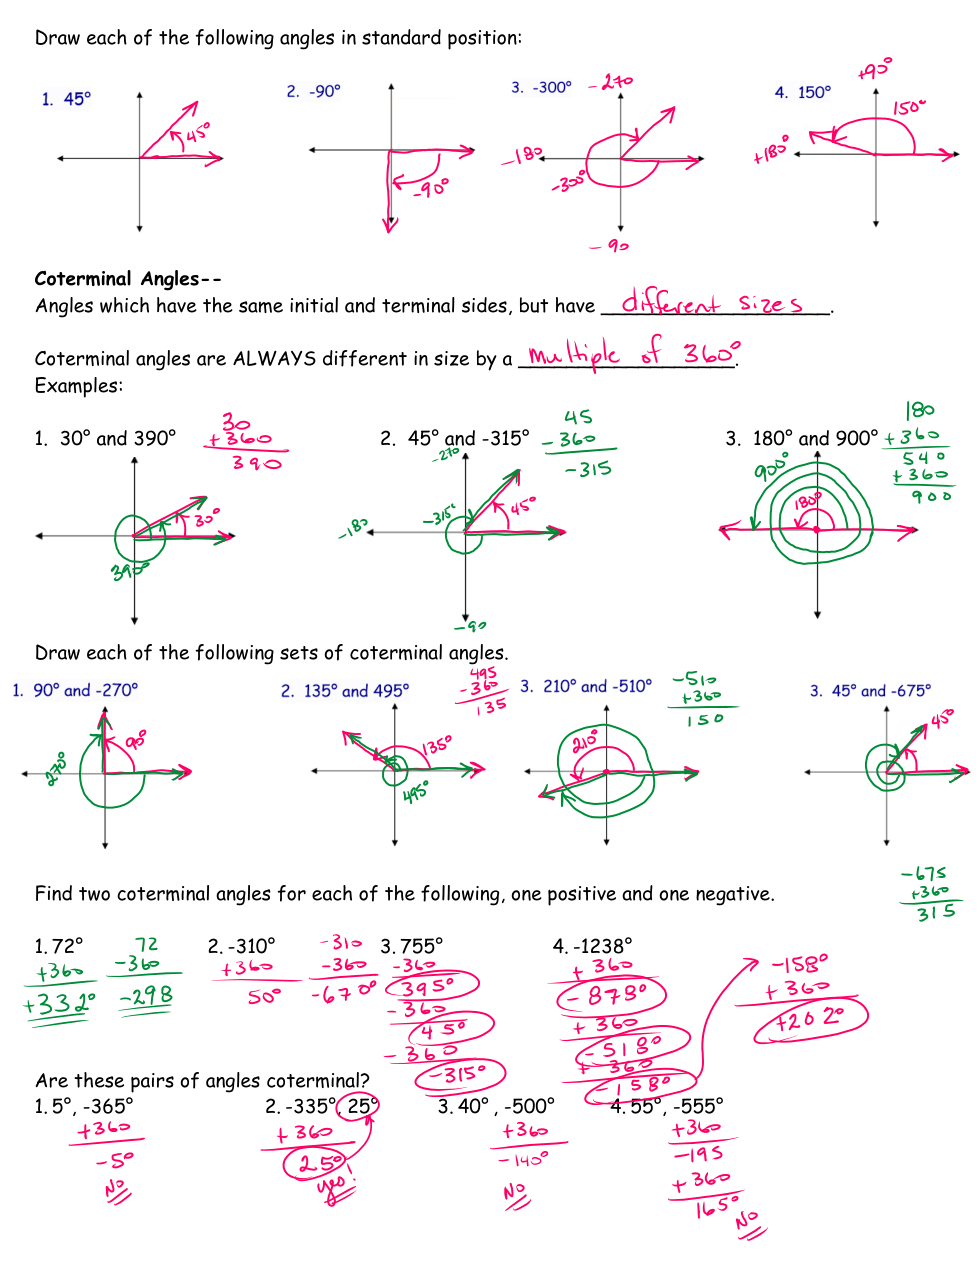 Draw each of the following angles in standard position:
1. 45°
2. -90°
3. -300°
4. 150°
45°
-90°
-270
-180
-300°
-90
+90°
150°
+180°
Coterminal Angles--
Angles which have the same initial and terminal sides, but have different sizes.
Coterminal angles are ALWAYS different in size by a multiple of 360°.
Examples:
1. 30° and 390°
30
+360
390
30°
390°
2. 45° and -315°
45
-360
-315
-270
-315°
45°
-180
-90
3. 180° and 900°
180
+360
540
+360
900
900°
180°
Draw each of the following sets of coterminal angles.
1. 90° and -270°
90°
270°
2. 135° and 495°
495
-360
135
135°
495°
3. 210° and -510°
-510
+360
150
210°
3. 45° and -675°
45°
-675
+360
315
Find two coterminal angles for each of the following, one positive and one negative.
1. 72°
+360
+332°
72
-360
-298
2. -310°
+360
50°
-310
-360
-670°
3. 755°
-360
395°
-360
45°
-360
-315°
4. -1238°
+360
-878°
+360
-518°
+360
-158°
-158°
+360
+202°
Are these pairs of angles coterminal?
1. 5°, -365°
+360
-5°
No
2. -335°, 25°
+360
25°
yes!
3. 40° , -500°
+360
-140°
No
4. 55°, -555°
+360
-195
+360
165°
No